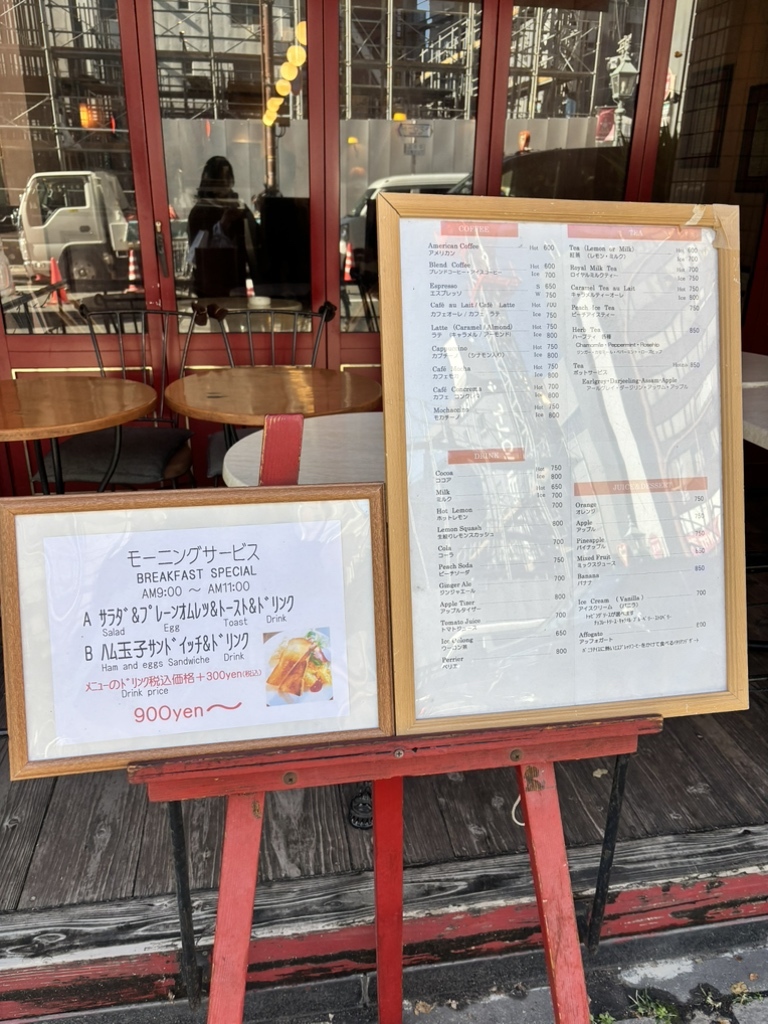 モーニングサービス
BREAKFAST SPECIAL
AM9:00 〜 AM11:00
A サラダ&プレーンオムレツ&トースト&ドリンク
Salad Egg Toast Drink
B ハム玉子サンドイッチ&ドリンク
Ham and eggs Sandwiche Drink
メニューのドリンク税込価格+300yen(税込)
Drink price
900yen〜
COFFEE
American Coffee Hot 600
アメリカン
Blend Coffee Hot 600
ブレンドコーヒー・アイスコーヒー Ice 700
Espresso S 650
エスプレッソ W 750
Café au Lait/Café Latte Hot 700
カフェオーレ/カフェ ラテ Ice 750
Latte (Caramel/Almond) Hot 750
ラテ (キャラメル/アーモンド) Ice 800
Cappuccino Hot 750
カプチーノ (シナモン入り) Ice 800
Café Mocha Hot 750
カフェモカ Ice 800
Café Hot 700
カフェ Ice 800
Mochaccino Hot 750
モカチーノ Ice 800
DRINK
Cocoa Hot 750
ココア Ice 800
Milk Hot 650
ミルク Ice 700
Hot Lemon 700
ホットレモン
Lemon Squash 800
生絞りレモンスカッシュ
Cola 700
コーラ
Peach Soda 750
ピーチソーダ
Ginger Ale 700
ジンジャエール
Apple Tizer 800
アップルタイザー
Tomato Juice 700
トマトジュース
Ice Oolong 650
ウーロン茶
Perrier 800
ペリエ
TEA
Tea (Lemon or Milk) Hot 600
紅茶 (レモン・ミルク) Ice 700
Royal Milk Tea Hot 750
ロイヤルミルクティー
Caramel Tea au Lait Hot 750
キャラメルティーオーレ Ice 800
Peach Ice Tea 750
ピーチアイスティー
Herb Tea 850
ハーブティ 各種
Chamomile・Peppermint・Rosehip
Tea 850
ポットサービス
Earlgrey・Darjeeling・Assam・Apple
アールグレイ・ダージリン・アッサム・アップル
Orange 750
オレンジ
Apple 750
アップル
Pineapple 750
パイナップル
Mixed Fruit
ミックスジュース
Banana 850
バナナ
Ice Cream (Vanilla) 700
アイスクリーム (バニラ)
Affogato
アッフォガート